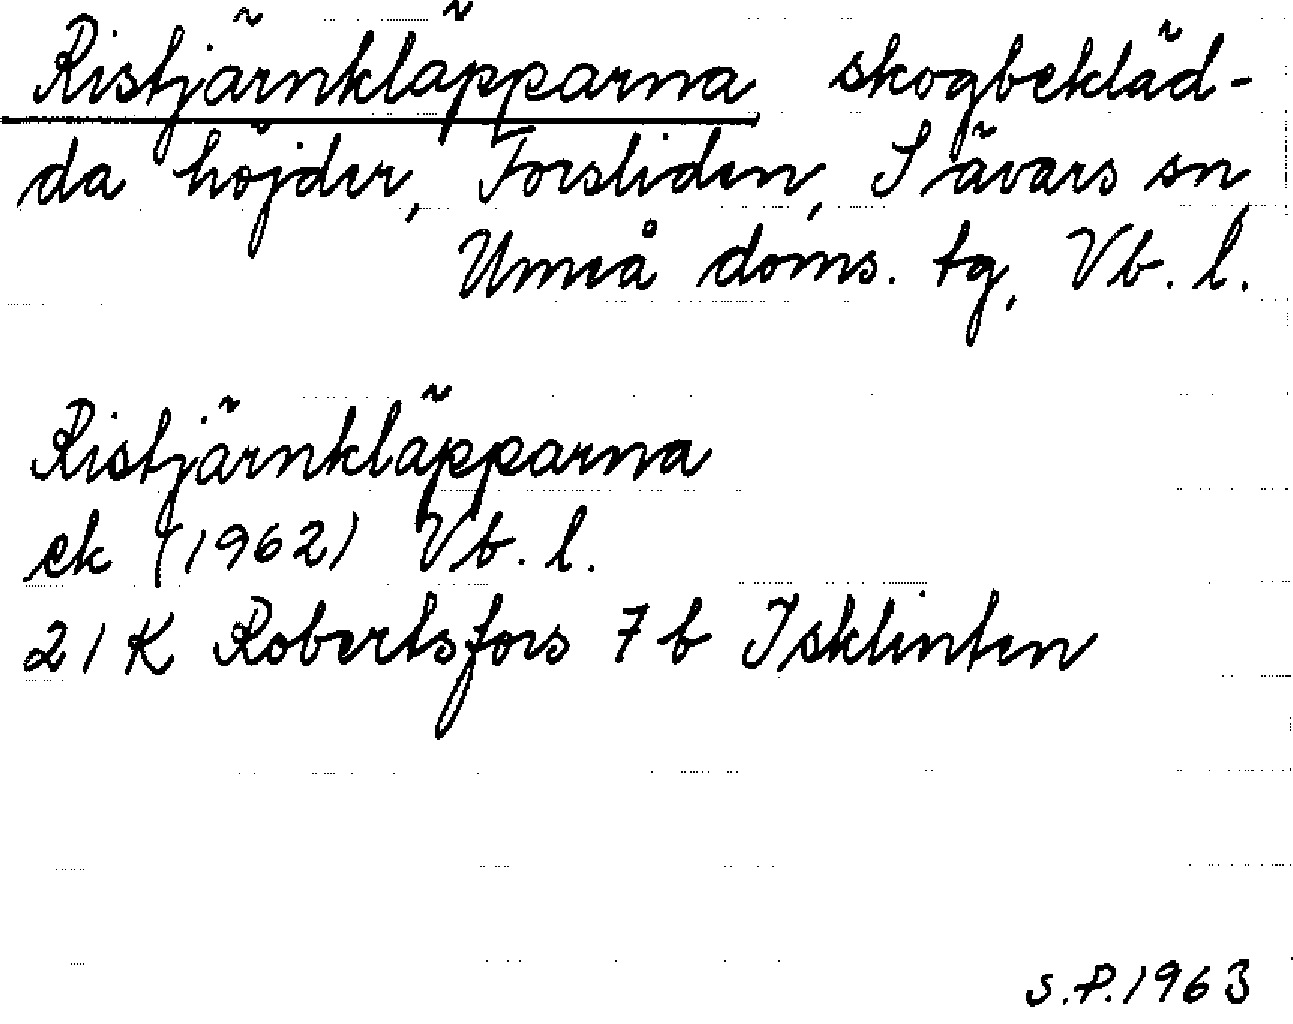 Ristjärnkläpparna skogbekläd-
da höjder, Forsliden, Sävars sn
Umeå doms. tg, Vb. l.
Ristjärnkläpparna
ek (1962) Vb. l.
21 K Robertsfors 7 b Isklinten
S.P. 1963